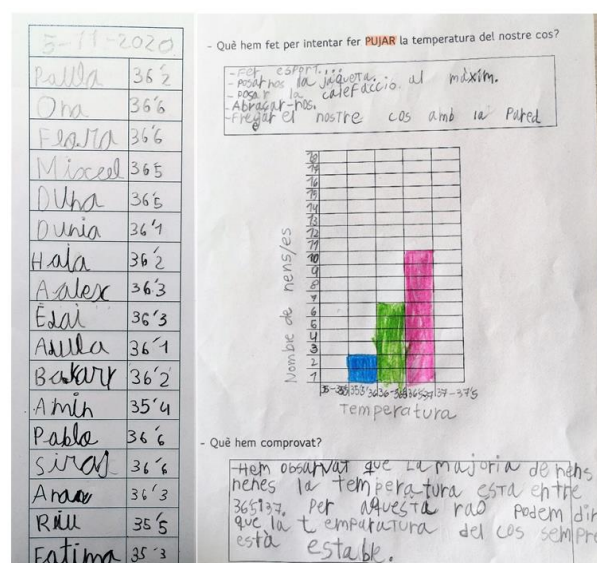 5-11-2020
Paula 36'2
Ona 36'6
36'6
365
Duna 36'5
Dunia 36'1
Haja 36'2
Aalex 36'3
36'3
36'1
36'2
Amin 35'4
Pablo 36'6
Siras 36'6
36'3
Riu 35'5
Fatima 35'3
- Què hem fet per intentar fer PUJAR la temperatura del nostre cos?
- Fer esport...
- Posar-nos la jaqueta.
- posar la calefacció al màxim.
- Abraçar-nos.
- Fregar el nostre cos amb la Pared
Nombre de nens/es
16
15
14
13
12
11
10
9
8
7
6
5
4
3
2
1
37-37'5
Temperatura
- Què hem comprovat?
-Hem obsarvat que La majoria de nens
nenes la temperatura esta entre
365i37. Per aquesta rao Podem dir
que la temparatura del cos sempre
està estable.